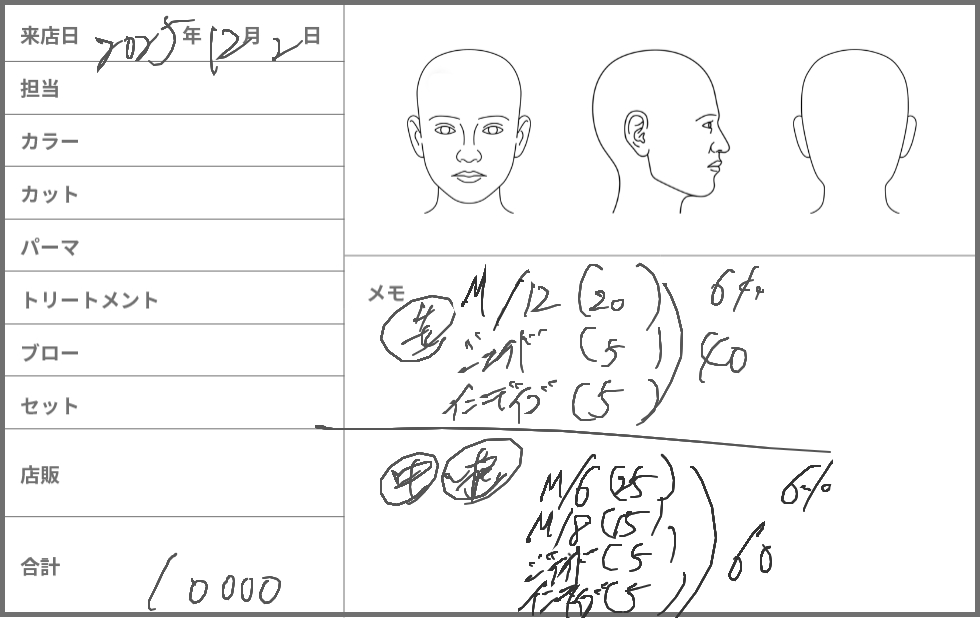 来店日 2025年12月2日
担当
カラー
カット
パーマ
トリートメント
ブロー
セット
店販
合計 10000
メモ
M/12 (20) 6%
ジェイド (5) 40
インディゴ (5)
中
M/6 (25) 6%
M/8 (15)
ジェイド (5) 60
インディゴ (5)